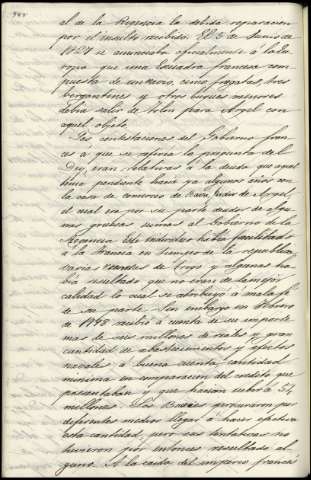 el de la Regencia la debida reparacion
por el insulto recibido. El 5 de Junio de
1827 se anunciaba oficialmente á la Eu-
ropa que una Escuadra francesa com-
puesta de un navio, cinco fragatas, tres
bergantines y otros buques menores
debia salir de Tolon para Argel con
aquel objeto.
Las contestaciones del Gobierno fran-
ces á que se referia la pregunta del
Dey, eran relativas á la deuda que aquel
tenia pendiente hacia ya algunos años con
la casa de comercio de Bacri, judio de Argel,
el cual era por su parte deudor de algu-
nas gruesas sumas al Gobierno de la
Regencia. Este individuo habia facilitado
á la Francia en tiempo de la republica
varias de trigo y algunas ha-
bia resultado que no eran de la mejor
calidad lo cual se atribuyó á mala fé
de su parte. Sin embargo en Febrero
de 1798 recibió á cuenta de su importe
mas de tres millones de reales y gran
cantidad de abastecimientos y efectos
navales á buena cuenta, cantidad
minima en comparacion del credito que
presentaban y que hacian subir á 54
millones. Los Bacris procuraron por
diferentes medios llegar á hacer efectiva
esta cantidad, pero sus tentativas no
tuvieron por entonces resultado al-
guno. A la caida del imperio francés